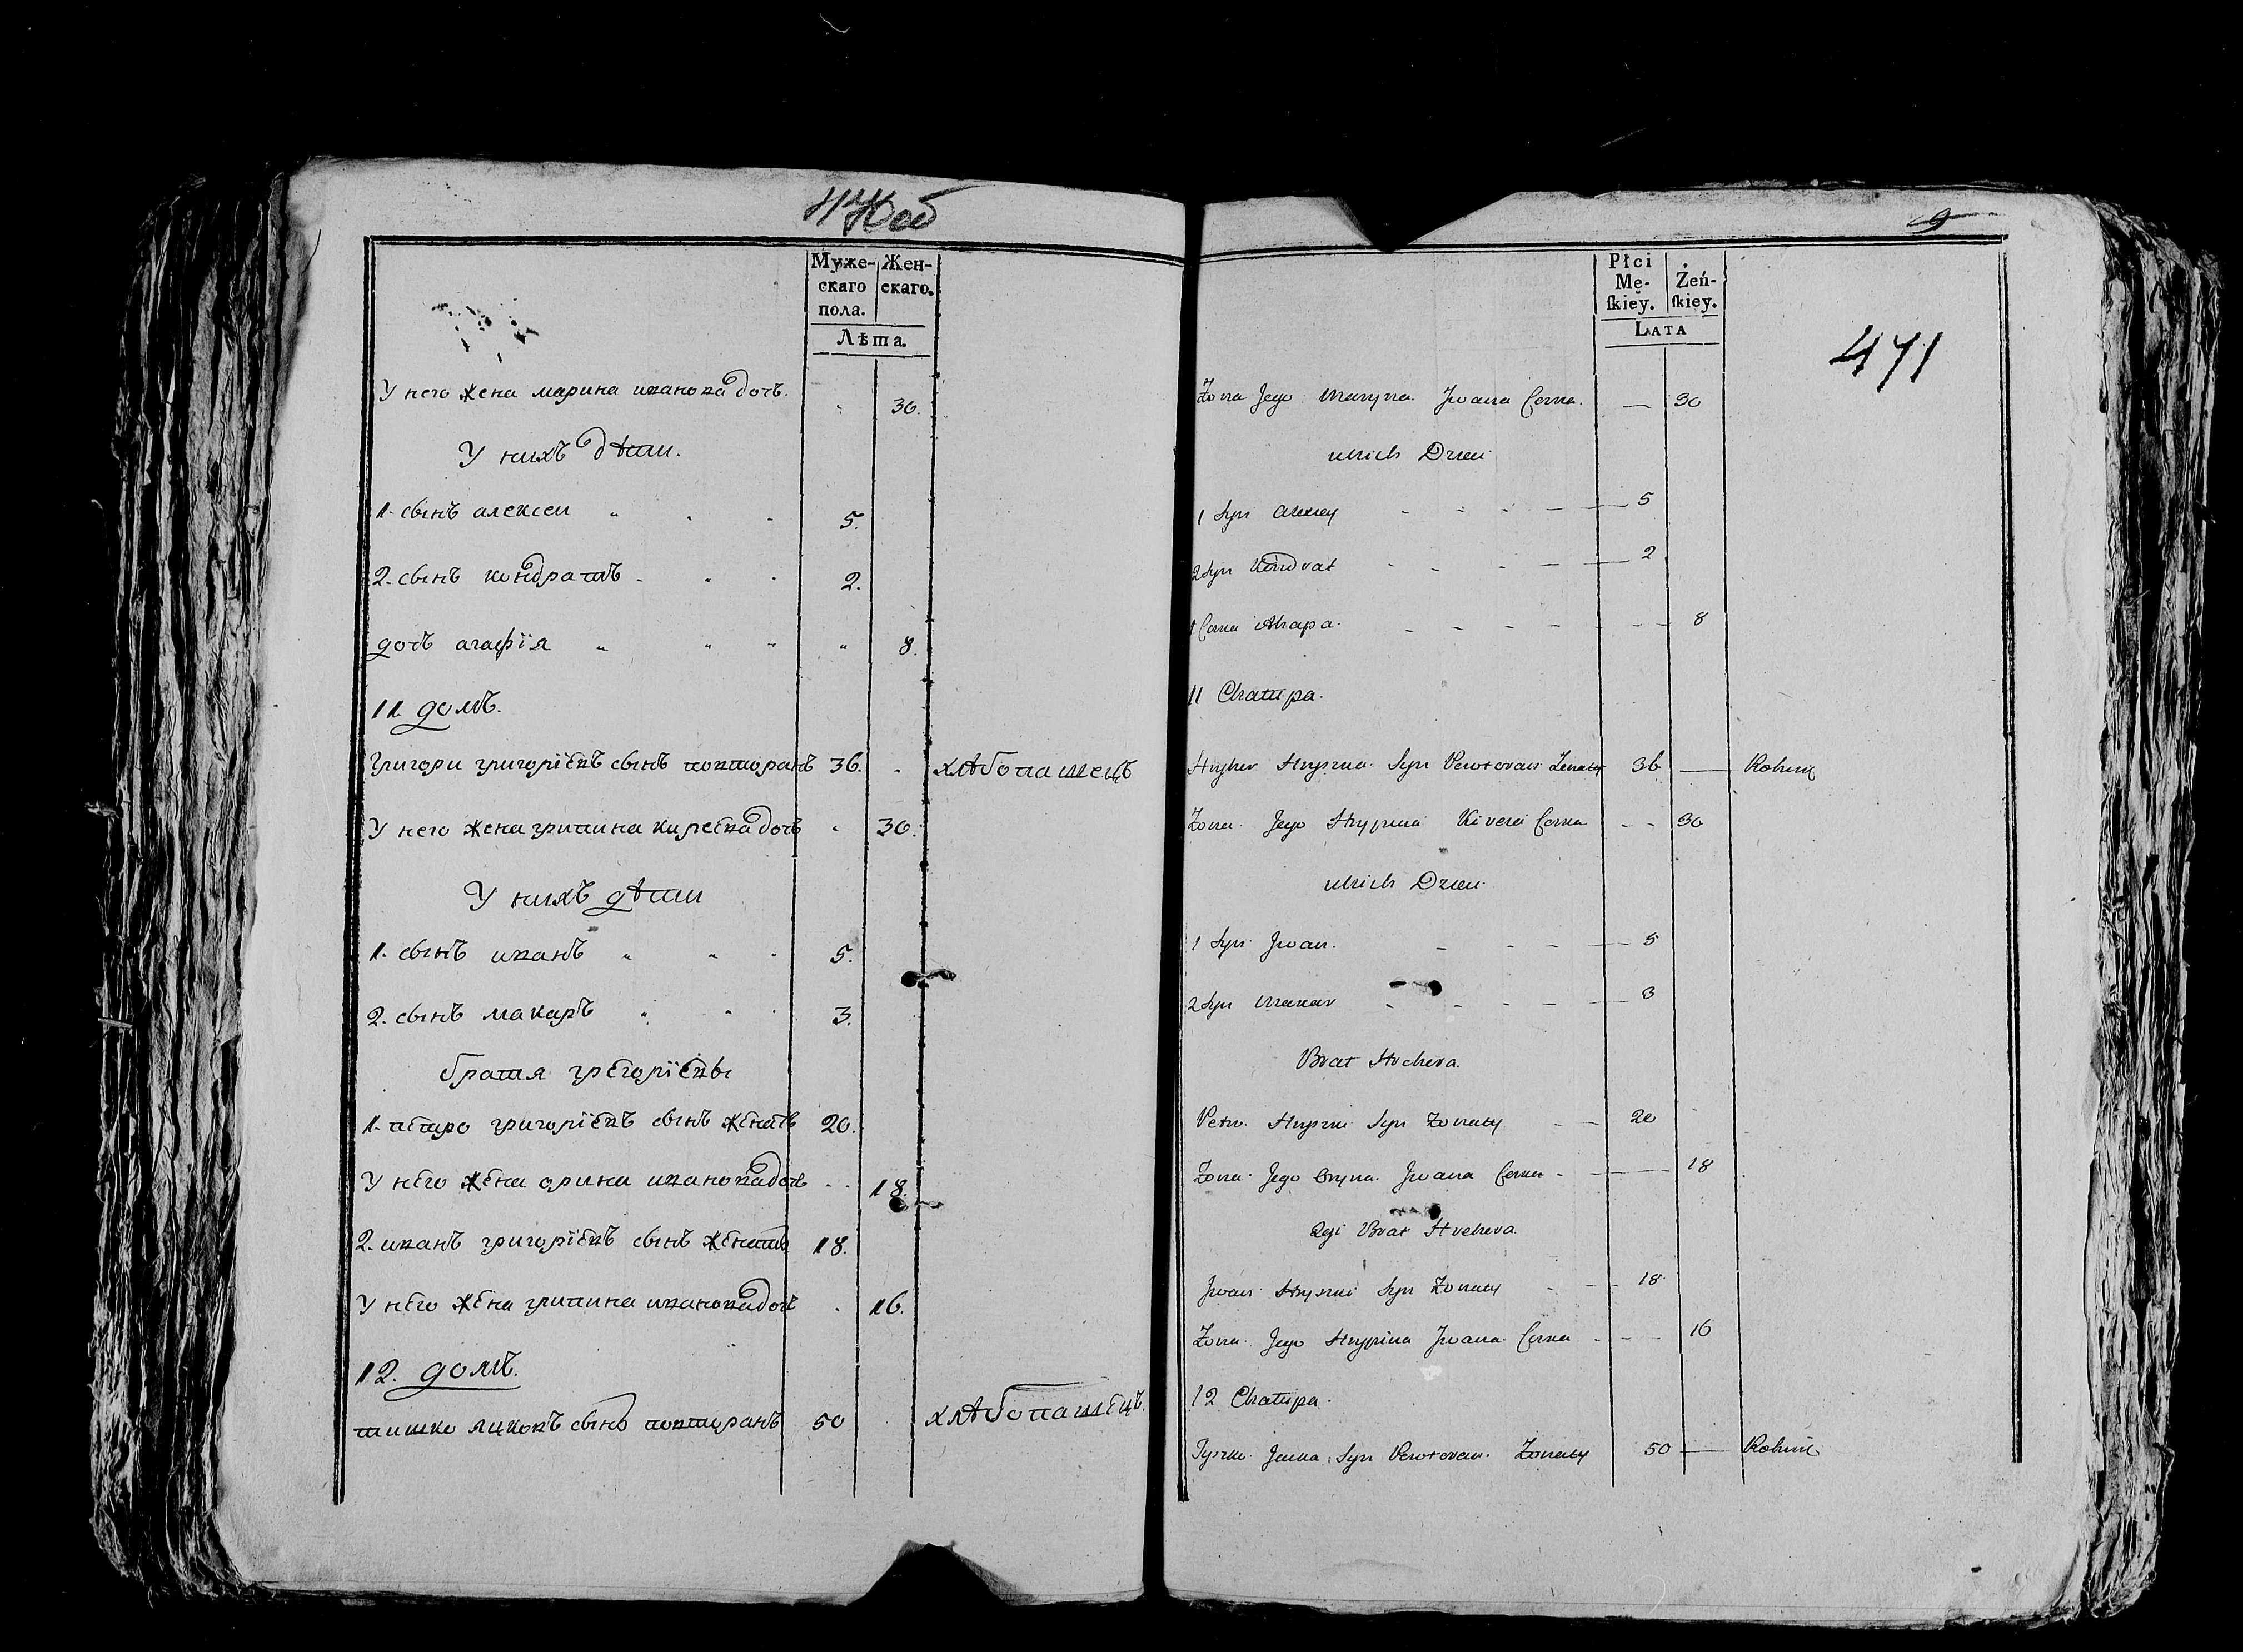 470об
Муже-
скаго
пола.
Жен-
скаго.
Лѣта.
У него жена марина иванова дочь. 30.
У нихъ дѣти.
1. сынъ алексеи 5.
2. сынъ кондратъ 2.
дочь агафїя 8.
11. домъ.
григори григорїевъ сынъ повторанъ 36. хлѣбопашецъ
У него жена грипина киреева дочь 30.
У нихъ дѣти
1. сынъ иванъ 5.
2. сынъ макаръ 3.
братя григорїевы
1. петро григорїевъ сынъ женатъ 20.
У него жена орина иванова дочь 18.
2. иванъ григорїевъ сынъ женатъ 18.
У него жена грипина иванова дочь 16.
12. домъ.
тишко яцковъ сынъ повторанъ 50 хлѣбопашецъ.
9
471
Płci
Mę-
ſkiey.
Żeń-
ſkiey.
Lata
Zona Jego Maryna Jwana Corka. 30
u nich Dzieci
1 Syn Alexiey 5
2 Syn Kondrat 2
1 Corka Ahapa. 8
11 Chałupa.
Hryhor Syn Zonaty 36 Rolnik
Zona Jego Hrypina Kireia Corka 30
u nich Dzieci
1 Syn Jwan. 5
2 Syn Makar 3
Brat Hrehora.
Petro Syn Zonaty 20
Zona Jego Oryna Jwana Corka 18
2gi Brat Hrehora.
Jwan Syn Zonaty 18
Zona Jego Hrypina Jwana Corka 16
12 Chałupa.
Tyszko Jacka Syn Zonaty 50 Rolnik